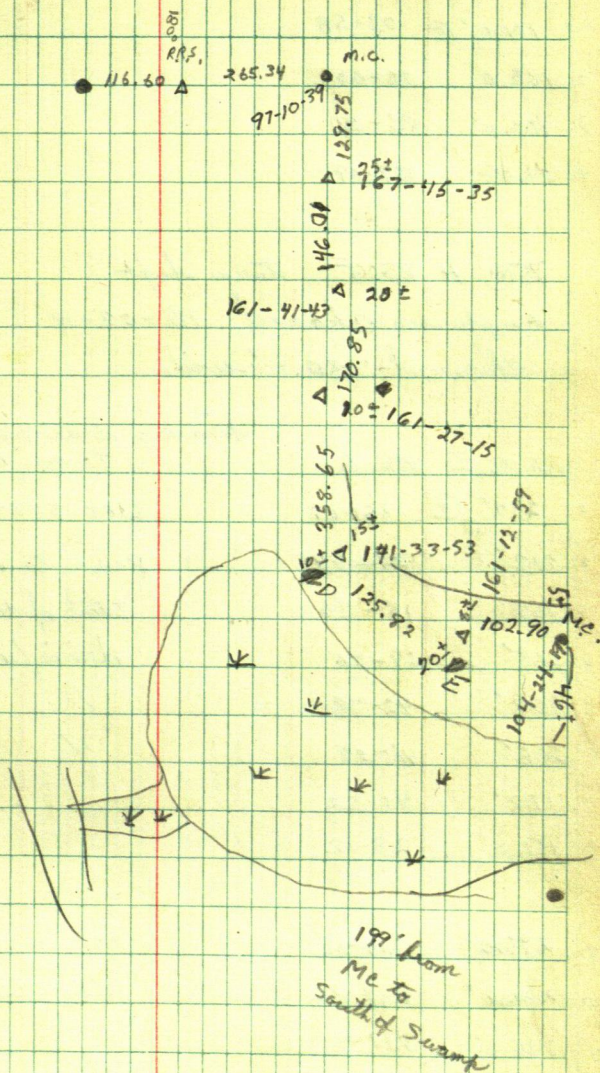 180°
RRS.
M.C.
116.60
265.34
97-10-39
129.75
25±
167-45-35
146.01
161-41-43
20±
170.85
20± 161-27-15
358.65
15±
141-33-53
10
1±
D
161-12-59
125.82
8±
102.90
MC.
20±
E
46±
199' from
MC to
South of Swamp